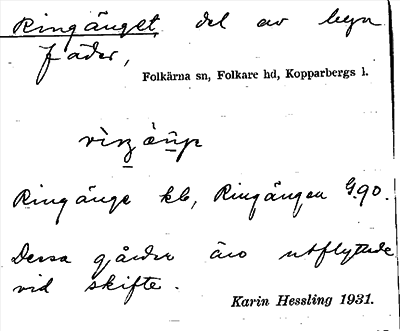 Ringänget, del av byn
Fäder,
Folkärna sn, Folkare hd, Kopparbergs l.
Ringänge kb, Ringängen G.90.
Dessa gårdar äro utflyttade
vid skifte.
Karin Hessling 1931.